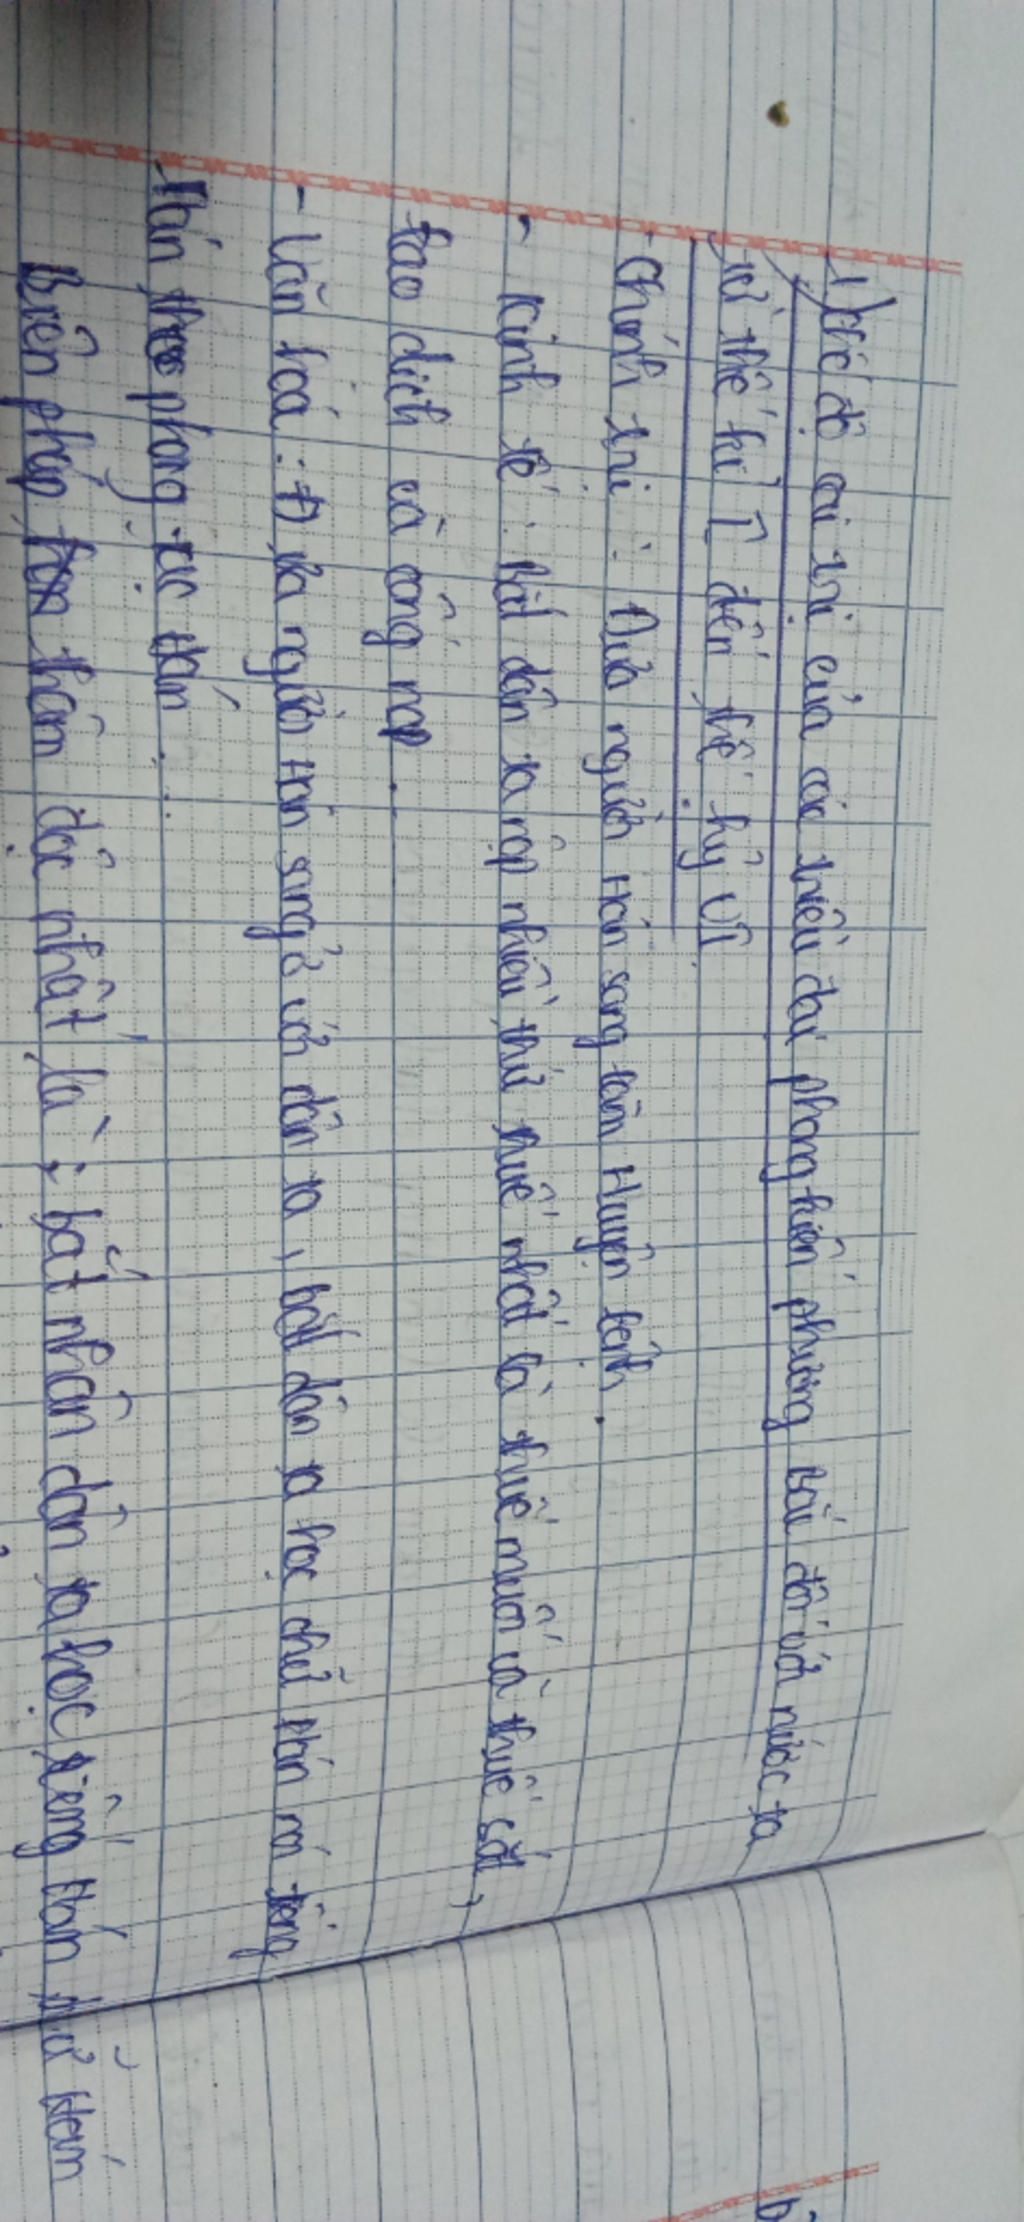 1) Chế độ cai trị của các triều đại phong kiến phương Bắc đối với nước ta
từ thế kỉ I đến thế kỷ VI
- Chính trị : Đưa người Hán sang làm Huyện lệnh.
- Kinh tế : Bắt dân ta nộp nhiều thứ thuế nhất là thuế muối và thuế sắt,
lao dịch và cống nạp.
- Văn hoá : Đưa người Hán sang ở với dân ta, bắt dân ta học chữ Hán nói tiếng
Hán theo phong tục Hán ...
Biện pháp thâm độc nhất là : bắt nhân dân ta học tiếng Hán chữ Hán